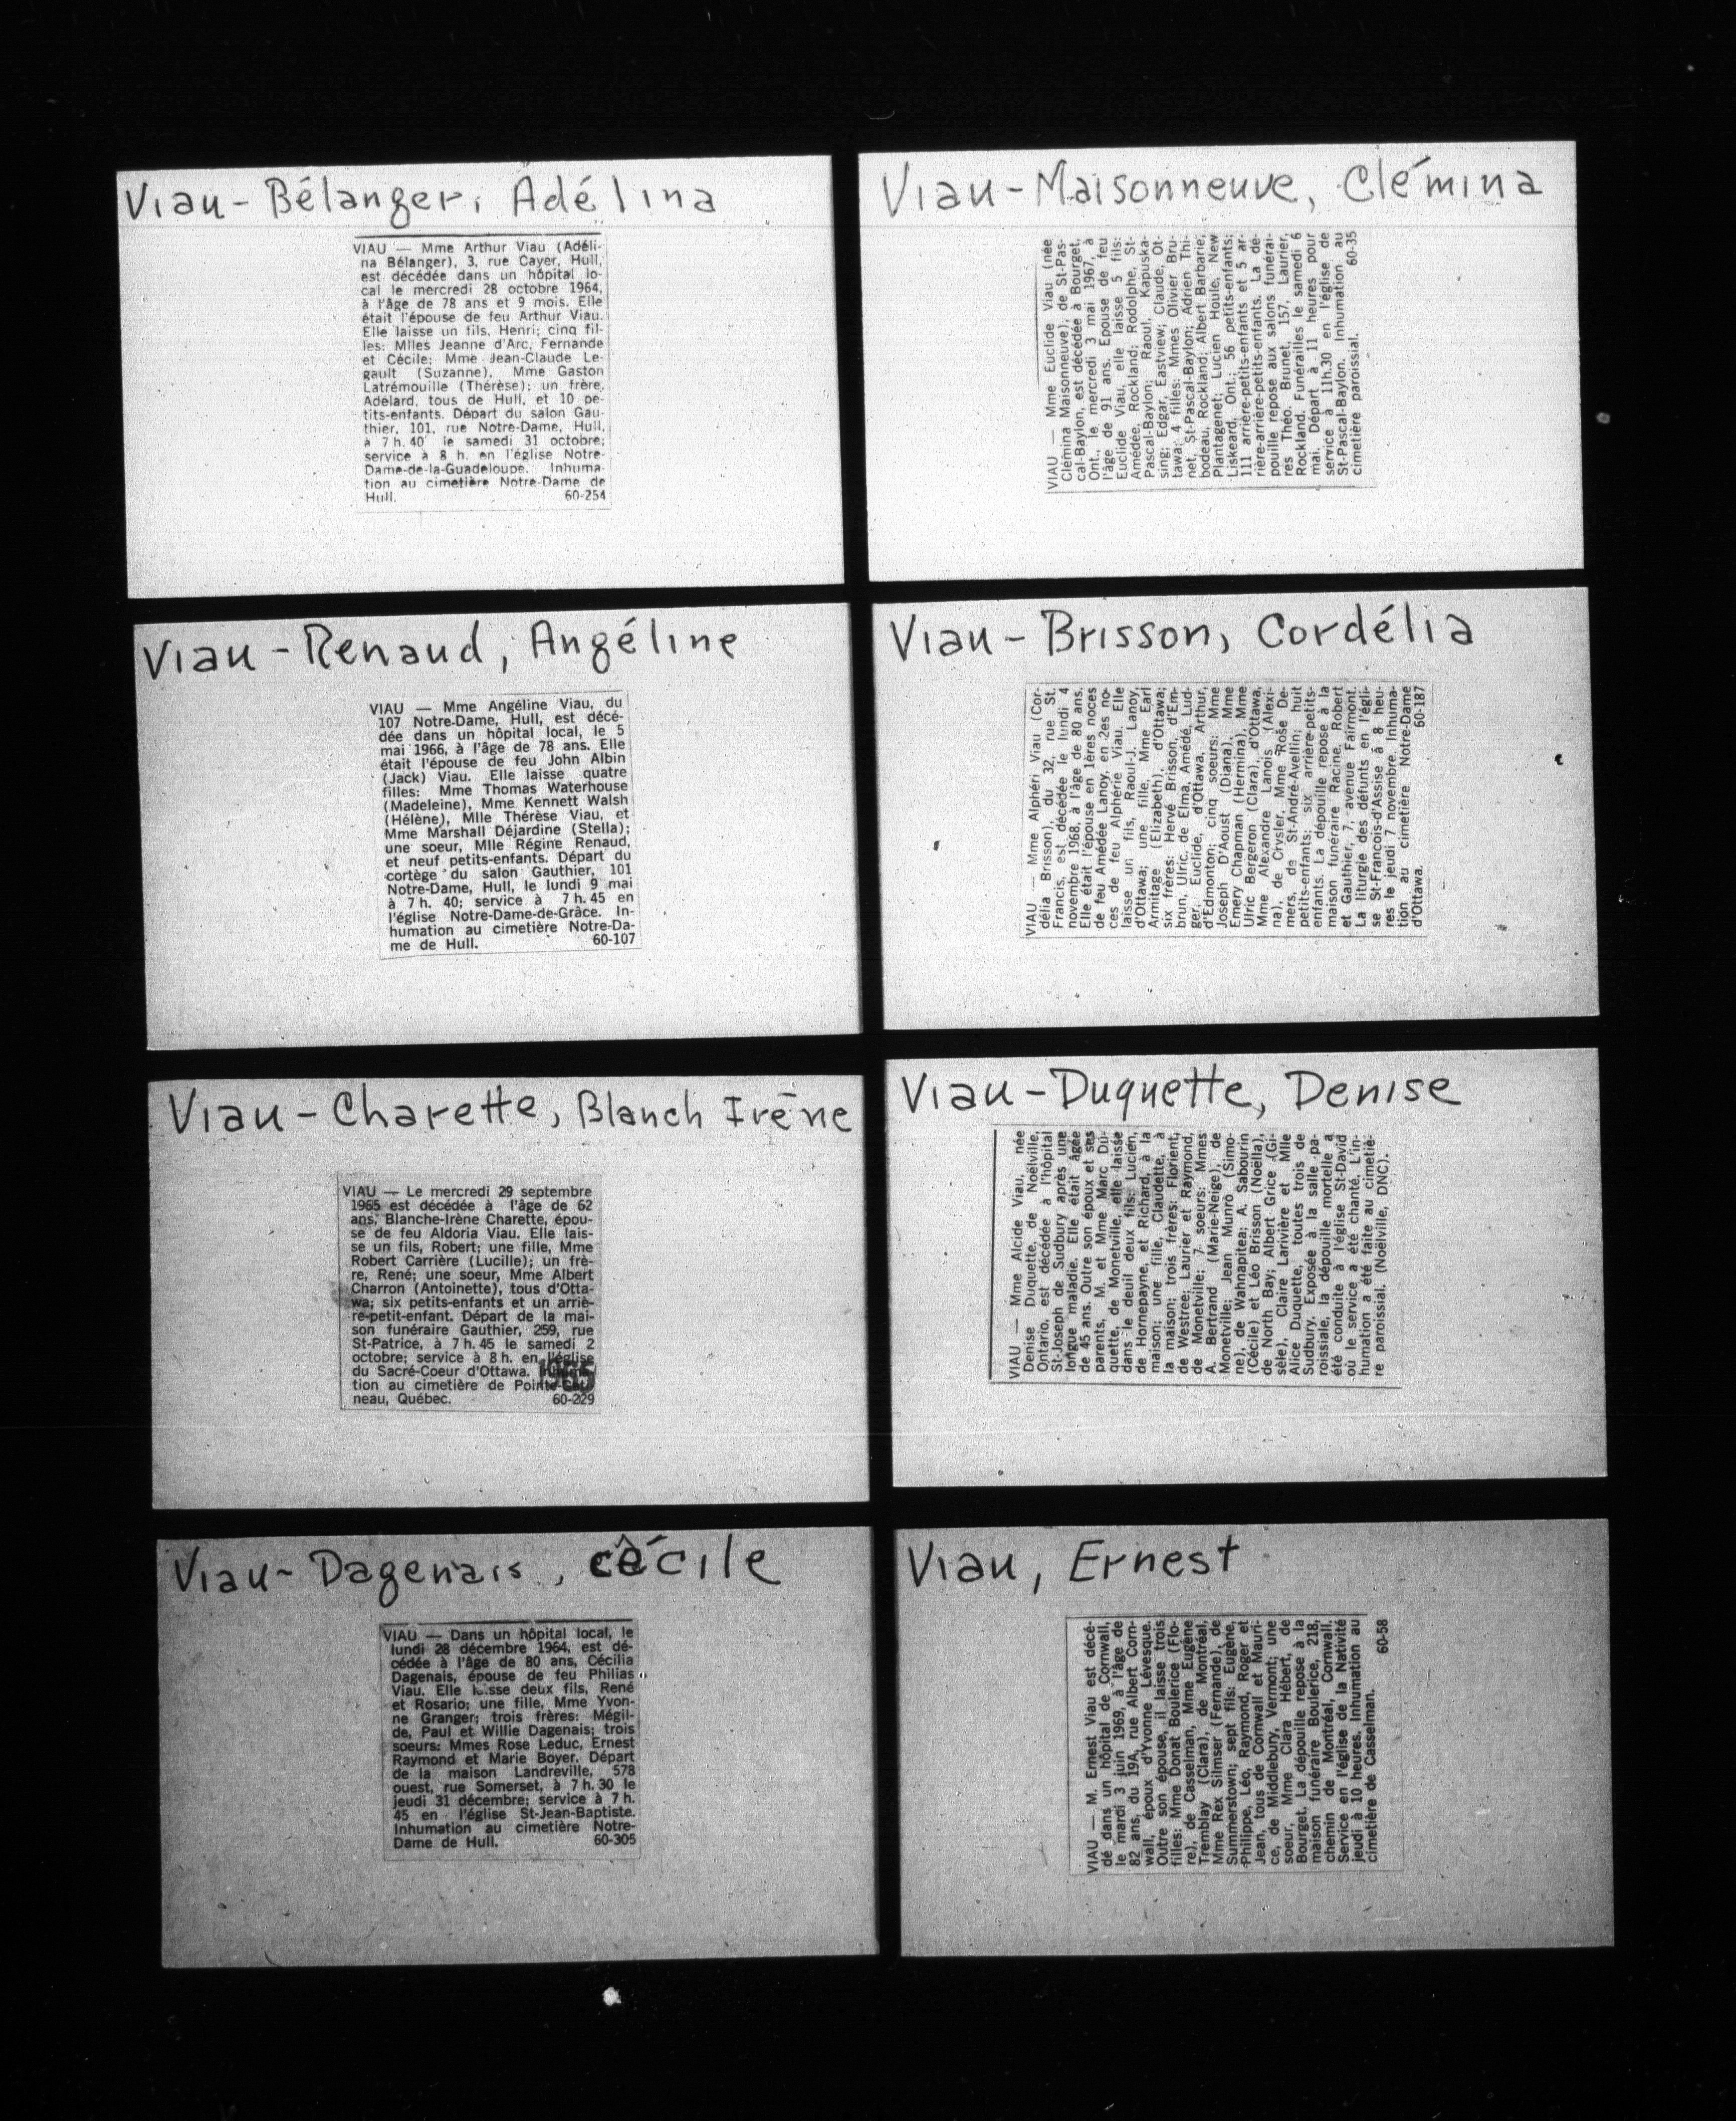 Viau-Bélanger, Adélina
VIAU — Mme Arthur Viau (Adéli-
na Bélanger), 3, rue Cayer, Hull,
est décédée dans un hôpital lo-
cal le mercredi 28 octobre 1964,
à l'âge de 78 ans et 9 mois. Elle
était l'épouse de feu Arthur Viau.
Elle laisse un fils, Henri; cinq fil-
les: Mlles Jeanne d'Arc, Fernande
et Cécile; Mme Jean-Claude Le-
gault (Suzanne), Mme Gaston
Latrémouille (Thérèse); un frère,
Adélard, tous de Hull, et 10 pe-
tits-enfants. Départ du salon Gau-
thier, 101, rue Notre-Dame, Hull,
à 7 h. 40 le samedi 31 octobre;
service à 8 h. en l'église Notre-
Dame-de-la-Guadeloupe. Inhuma-
tion au cimetière Notre-Dame de
Hull. 60-254
Viau-Maisonneuve, Clémina
VIAU — Mme Euclide Viau (née
Clémina Maisonneuve), de St-Pas-
cal-Baylon, est décédée à Bourget,
Ont., le mercredi 3 mai 1967, à
l'âge de 91 ans. Epouse de feu
Euclide Viau, elle laisse 5 fils:
Amédée, Rockland; Rodolphe, St-
Pascal-Baylon; Raoul, Kapuska-
sing; Edgar, Eastview; Claude, Ot-
tawa; 4 filles: Mmes Olivier Bru-
net, St-Pascal-Baylon; Adrien Thi-
bodeau, Rockland; Albert Barbarie,
Plantagenet; Lucien Houle, New
Liskeard, Ont.; 56 petits-enfants;
111 arrière-petits-enfants et 5 ar-
rière-arrière-petits-enfants. La dé-
pouille repose aux salons funérai-
res Théo. Brunet, 157, Laurier,
Rockland. Funérailles le samedi 6
mai. Départ à 11 heures pour
service à 11h.30 en l'église de
St-Pascal-Baylon. Inhumation au
cimetière paroissial. 60-35
Viau-Renaud, Angéline
VIAU — Mme Angéline Viau, du
107 Notre-Dame, Hull, est décé-
dée dans un hôpital local, le 5
mai 1966, à l'âge de 78 ans. Elle
était l'épouse de feu John Albin
(Jack) Viau. Elle laisse quatre
filles: Mme Thomas Waterhouse
(Madeleine), Mme Kennett Walsh
(Hélène), Mlle Thérèse Viau, et
Mme Marshall Déjardine (Stella);
une soeur, Mlle Régine Renaud,
et neuf petits-enfants. Départ du
cortège du salon Gauthier, 101
Notre-Dame, Hull, le lundi 9 mai
à 7 h. 40; service à 7 h. 45 en
l'église Notre-Dame-de-Grâce. In-
humation au cimetière Notre-Da-
me de Hull. 60-107
Viau-Brisson, Cordélia
VIAU — Mme Alphéri Viau (Cor-
délia Brisson), du 32, rue St.
Francis, est décédée le lundi 4
novembre 1968, à l'âge de 80 ans.
Elle était l'épouse en 1ères noces
de feu Amédée Lanoy, en 2es no-
ces de feu Alphérie Viau. Elle
laisse un fils, Raoul-J. Lanoy,
d'Ottawa; une fille, Mme Earl
Armitage (Elizabeth), d'Ottawa;
six frères: Hervé Brisson, d'Em-
brun, Ulric, de Elma, Amédé, Lud-
ger, Euclide, d'Ottawa, Arthur,
d'Edmonton; cinq soeurs: Mme
Joseph D'Aoust (Diana), Mme
Emery Chapman (Hermina), Mme
Ulric Bergeron (Clara), d'Ottawa,
Mme Alexandre Lanois (Alexi-
na), de Crysler, Mme Rose De-
mers, de St-André-Avellin; huit
petits-enfants; six arrière-petits-
enfants. La dépouille repose à la
maison funéraire Racine, Robert
et Gauthier, 7, avenue Fairmont.
La liturgie des défunts en l'égli-
se St-François-d'Assise à 8 heu-
res le jeudi 7 novembre. Inhuma-
tion au cimetière Notre-Dame
d'Ottawa. 60-187
Viau-Charette, Blanch Irène
VIAU — Le mercredi 29 septembre
1965 est décédée à l'âge de 62
ans, Blanche-Irène Charette, épou-
se de feu Aldoria Viau. Elle lais-
se un fils, Robert; une fille, Mme
Robert Carrière (Lucille); un frè-
re, René; une soeur, Mme Albert
Charron (Antoinette), tous d'Otta-
wa; six petits-enfants et un arriè-
re-petit-enfant. Départ de la mai-
son funéraire Gauthier, 259, rue
St-Patrice, à 7 h. 45 le samedi 2
octobre; service à 8 h. en l'église
du Sacré-Coeur d'Ottawa.
tion au cimetière de
neau, Québec. 60-229
Viau-Duquette, Denise
VIAU — Mme Alcide Viau, née
Denise Duquette, de Noëlville,
Ontario, est décédée à l'hôpital
St-Joseph de Sudbury après une
longue maladie. Elle était âgée
de 45 ans. Outre son époux et ses
parents, M. et Mme Marc Du-
quette, de Monetville, elle laisse
dans le deuil deux fils: Lucien,
de Hornepayne, et Richard, à la
maison; une fille, Claudette, à
la maison; trois frères: Florient,
de Westree; Laurier et Raymond,
de Monetville; 7 soeurs: Mmes
A. Bertrand (Marie-Neige), de
Monetville; Jean Munro (Simo-
ne), de Wahnapitea; A. Sabourin
(Cécile) et Léo Brisson (Noëlla),
de North Bay; Albert Grice (Gi-
sèle), Claire Larivière et Mlle
Alice Duquette, toutes trois de
Sudbury. Exposée à la salle pa-
roissiale, la dépouille mortelle a
été conduite à l'église St-David
où le service a été chanté. L'in-
humation a été faite au cimetiè-
re paroissial. (Noëlville, DNC).
Viau-Dagenais, Cécile
VIAU — Dans un hôpital local, le
lundi 28 décembre 1964, est dé-
cédée à l'âge de 80 ans, Cécilia
Dagenais, épouse de feu Philias
Viau. Elle laisse deux fils, René
et Rosario; une fille, Mme Yvon-
ne Granger; trois frères: Mégil-
de, Paul et Willie Dagenais; trois
soeurs: Mmes Rose Leduc, Ernest
Raymond et Marie Boyer. Départ
de la maison Landreville, 578
ouest, rue Somerset, à 7 h. 30 le
jeudi 31 décembre; service à 7 h.
45 en l'église St-Jean-Baptiste.
Inhumation au cimetière Notre-
Dame de Hull. 60-305
Viau, Ernest
VIAU — M. Ernest Viau est décé-
dé dans un hôpital de Cornwall,
le mardi 3 juin 1969, à l'âge de
82 ans, du 19A, rue Albert Corn-
wall, époux d'Yvonne Lévesque.
Outre son épouse, il laisse trois
filles: Mme Donat Boulerice (Flo-
re), de Casselman, Mme Eugène
Tremblay (Clara), de Montréal,
Mme Rex Silmser (Fernande), de
Summerstown; sept fils: Eugène,
Philippe, Léo, Raymond, Roger et
Jean, tous de Cornwall et Mauri-
ce, de Middlebury, Vermont; une
soeur, Mme Clara Hébert, de
Bourget. La dépouille repose à la
maison funéraire Boulerice, 218,
chemin de Montréal, Cornwall.
Service en l'église de la Nativité
jeudi à 10 heures. Inhumation au
cimetière de Casselman. 60-58